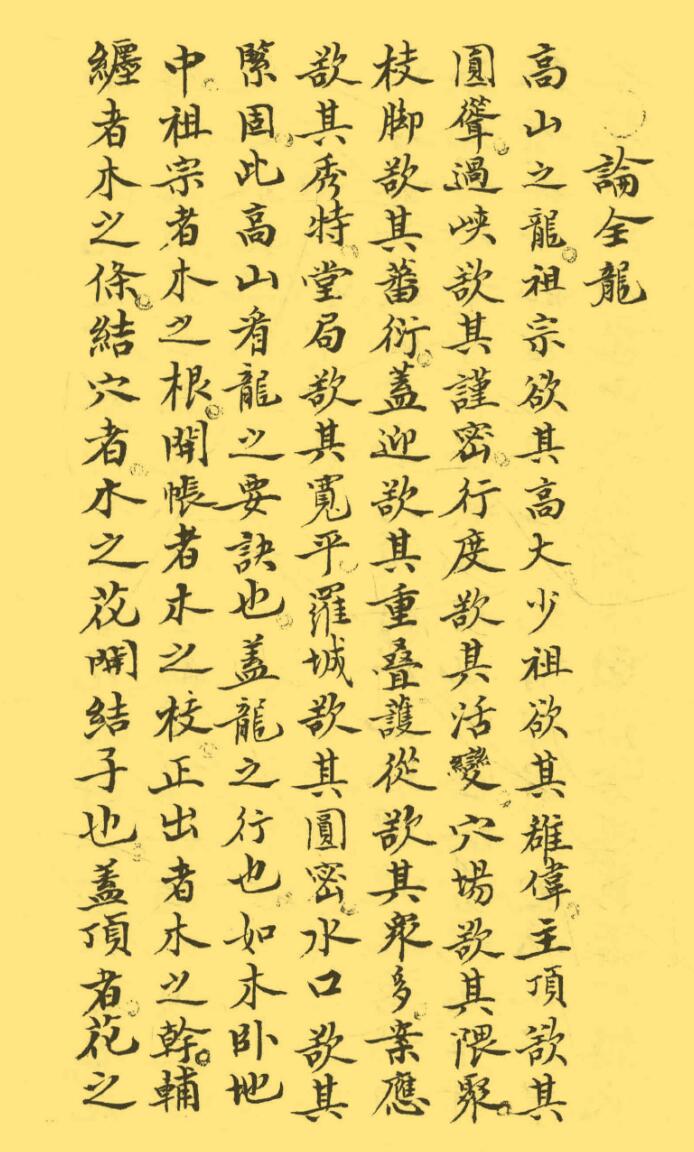 論全龍
高山之龍祖宗欲其高大少祖欲其雄偉主頂欲其
圓聳過峽欲其謹密行度欲其活變穴場欲其隈聚
枝脚欲其蕃衍蓋迎欲其重叠護從欲其衆多案應
欲其秀特堂局欲其寬平羅城欲其圓密水口欲其
緊固此高山看龍之要訣也蓋龍之行也如木卧地
中祖宗者木之根開帳者木之枝正出者木之幹輔
纒者木之條結穴者木之花開結子也蓋頂者花之